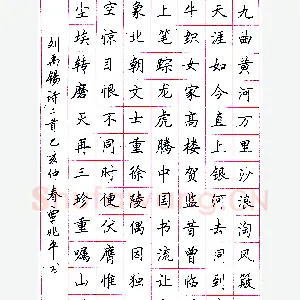 九曲黄河万里沙浪淘风簸
天涯如今直上银河去同到
牛织女家高楼贺监昔曾临
上笔踪龙虎腾中国书流让
象北朝文士重徐陵偶因独
空惊目恨不同时便伏膺惟
尘埃转磨灭再三珍重嘱山
刘禹锡诗二首己亥仲春曹兆年书